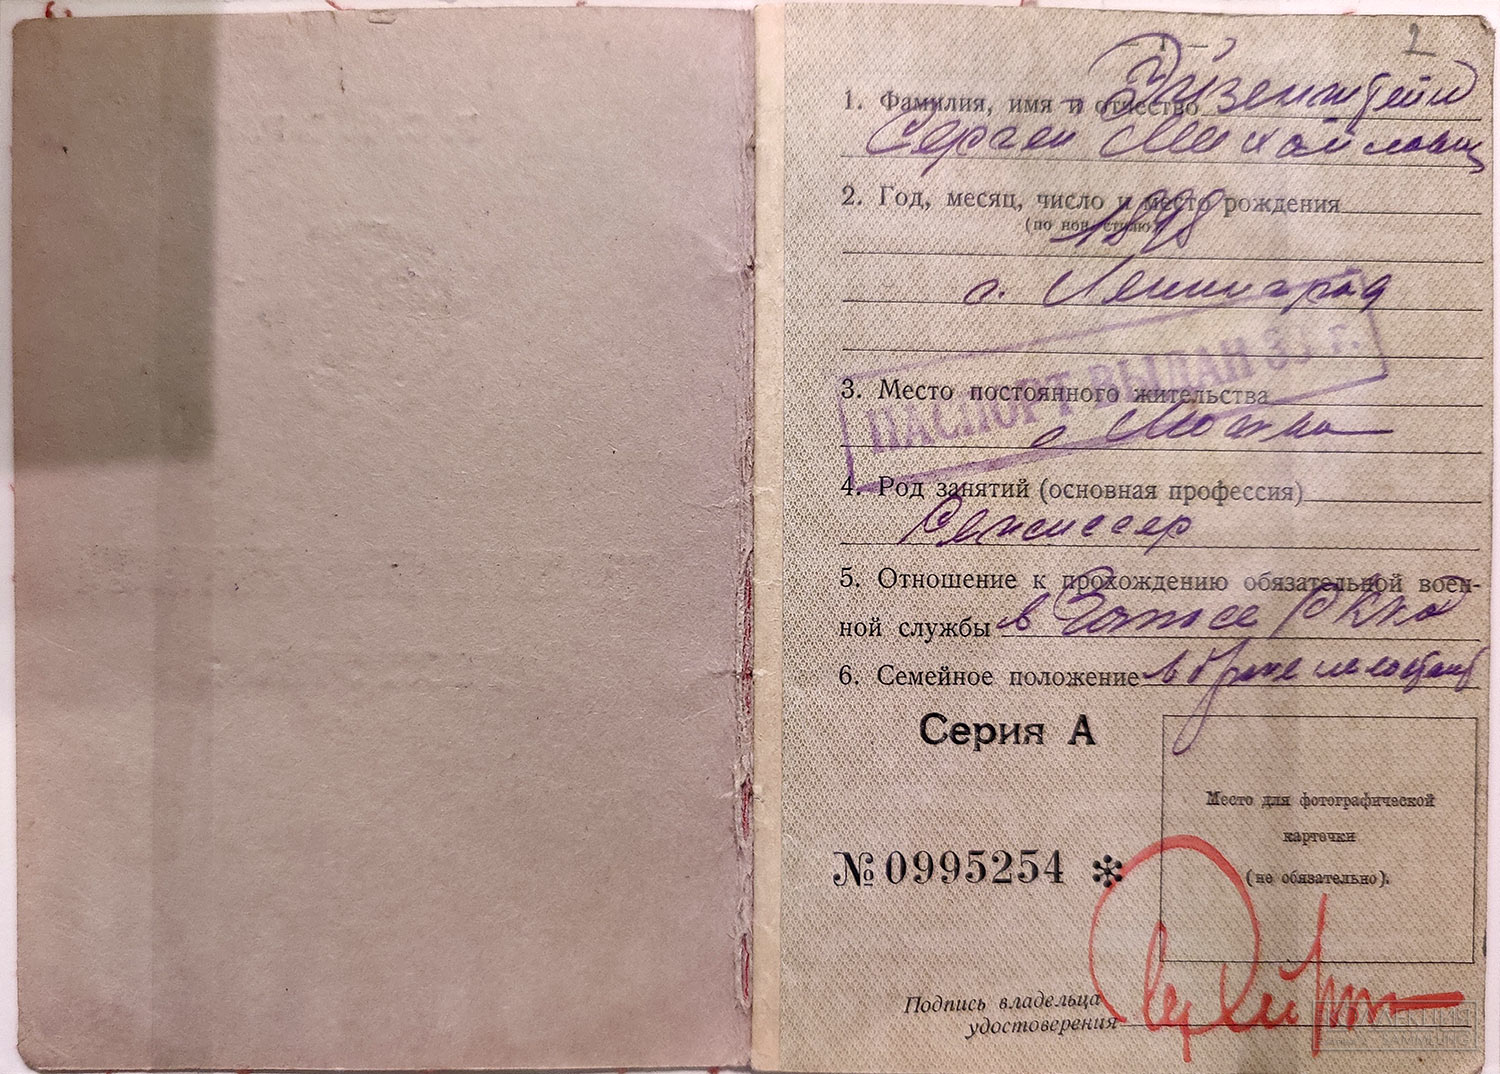 2
— 1 —
1. Фамилия, имя и отчество Эйзенштейн
Сергей Михайлович
2. Год, месяц, число и место рождения
(по нов. стилю)
1898
г. Ленинград
ПАСПОРТ ВЫДАН 33 г.
3. Место постоянного жительства
г. Москва
4. Род занятий (основная профессия)
Режиссер
5. Отношение к прохождению обязательной воен-
ной службы в Запасе РККА
6. Семейное положение в браке не состоит
Серия А
Место для фотографической
карточки
(не обязательно).
№ 0995254 *
Подпись владельца
удостоверения
КОЛЛЕКЦИЯ
SAMMLUNG